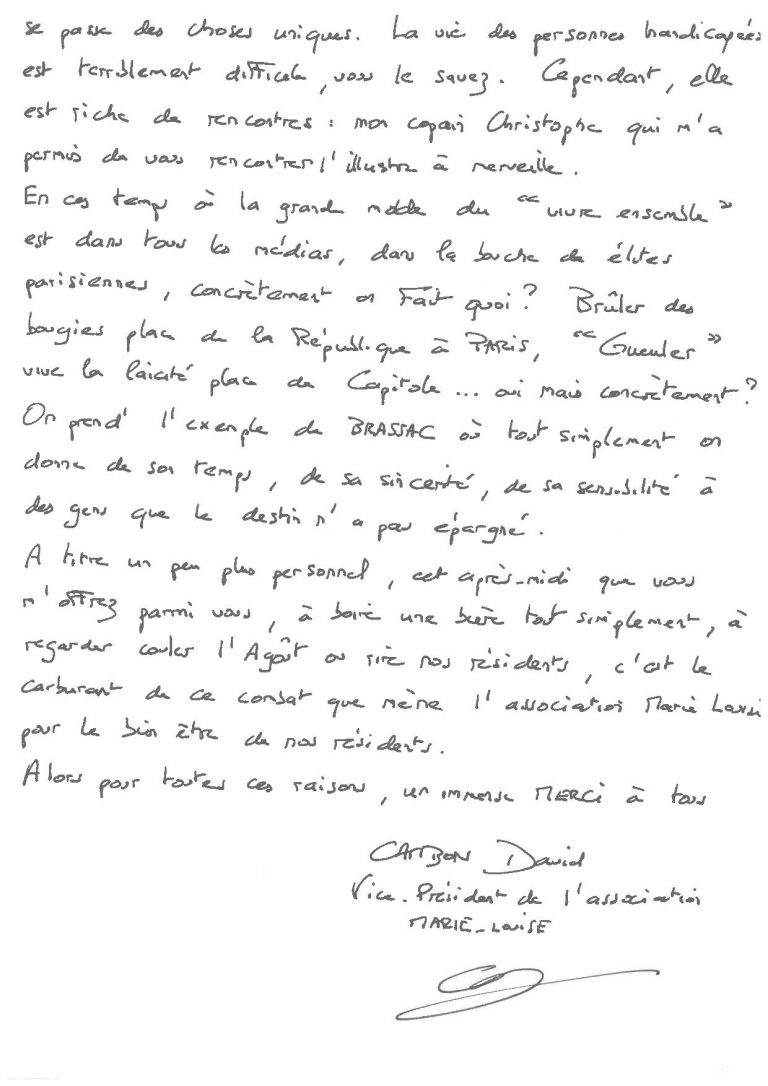 se passe des choses uniques. La vie des personnes handicapées
est terriblement difficile, vous le savez. Cependant, elle
est riche de rencontres : mon copain Christophe qui m'a
permis de vous rencontrer l'illustre à merveille.
En ces temps où la grande mode du "vivre ensemble"
est dans tous les médias, dans la bouche de élites
parisiennes, concrètement on Fait quoi ? Brûler des
bougies place de la République à PARIS, "Gueuler"
vive la laïcité place du Capitole ... oui mais concrètement ?
On prend l'exemple de BRASSAC où tout simplement on
donne de son temps, de sa sincérité, de sa sensibilité à
des gens que le destin n'a pas épargné.
A titre un peu plus personnel, cet après-midi que vous
m'offrez parmi vous, à boire une bière tout simplement, à
regarder couler l'Agoût ou rire nos résidents, c'est le
carburant de ce combat que mène l'association Marie Louise
pour le bien être de nos résidents.
Alors pour toutes ces raisons, un immense MERCi à tous
David
Vice-Président de l'association
MARIE-LOUISE